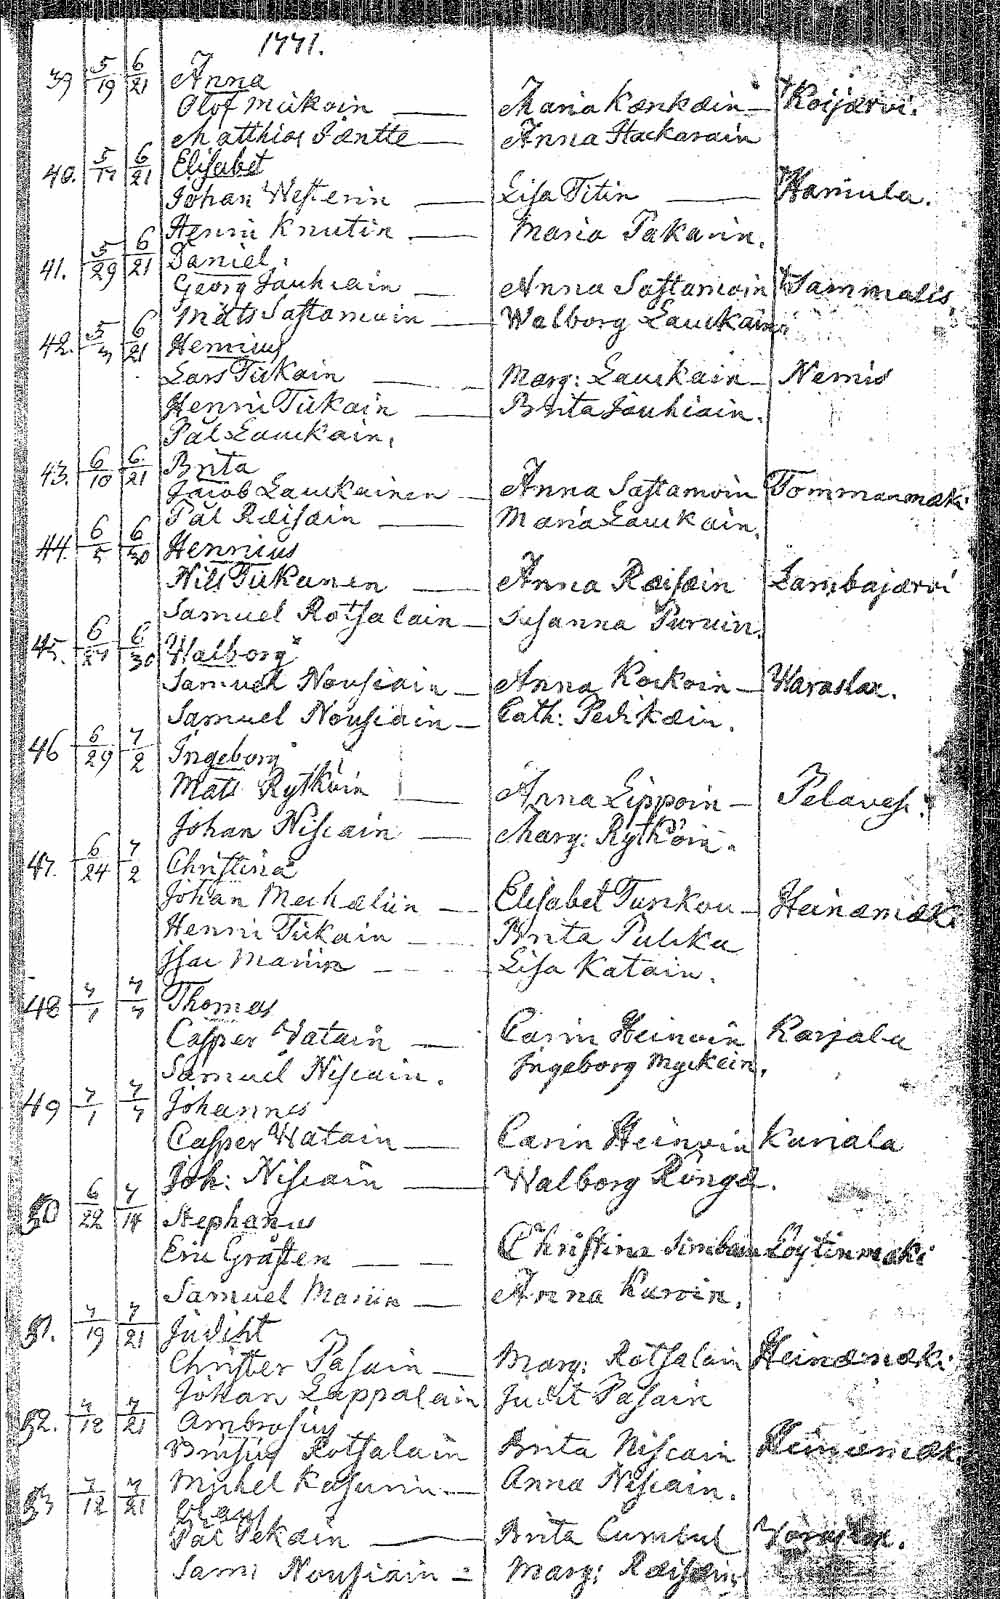 1771.
39 5/19 6/21 Anna
Olof Mükoin — Maria Kænkæin — Koijærvi.
Matthias Jæntte — Anna Hackarain
40. 5/17 6/21 Elisabet
Johan Westerin — Lisa Titin — Hamula.
Henri Knutin — Maria Pakarin.
41. 5/29 6/21 Daniel.
Georg Jauhiain — Anna Sastamoin Sammalis
Mats Sastamoin — Walborg Lauckain
42. 5/3 6/21 Henrius
Lars Tükain — Marg: Lauckain — Nemis
Henri Tükain — Brita Jauhiain.
Pål Lauckain.
43. 6/10 6/21 Brita
Jacob Lauckainen — Anna Sastamoin Tommanmæki
Pål Ræisæin — Maria Lauckain.
44. 6/5 6/30 Henrius
Nils Tükanen — Anna Ræisæin Lambajærvi
Samuel Rotsalain — Susanna Puruin.
45. 6/27 6/30 Walborg
Samuel Nousiain — Anna Kockoin — Waraslax.
Samuel Nousiain — Cath: Peckkæin.
46 6/29 7/2 Ingeborg
Matts Rytköin — Anna Lippoin — Pelavesi.
Johan Niscain — Marg: Rytköin.
47. 6/24 7/2 Christina
Johan Mechæliin — Elisabet Turckou — Heinæmæki
Henri Tükain — Brita Pulcka
Isac Maniin — Lisa Katain.
48 7/1 7/7 Thomas
Casper Watain — Carin Heinoin Karjala
Samuel Niscain. Ingeborg Myckäin.
49 7/1 7/7 Johannes
Casper Watain — Carin Heinoin Kariala
Joh: Niscain — Walborg Ronga.
50 6/22 7/14 Stephanus
Eric Gråsten — Christina Simbau Löytinmæki
Samuel Maniin — Anna Karvin.
51. 7/19 7/21 Judiht
Christer Pasain — Marg: Rotsalain Heinæmæki
Johan Lappalain Judit Pasain
52. 7/12 7/21 Ambrosius
Brusiüs Rotsalain Brita Niscain Heinæmæk
53 7/12 7/21 Michel Kasurin — Anna Niscain.
Olaus
Pål Pekæin — Brita Cumbul
Sam: Nousiain — Marg: Ræisæin